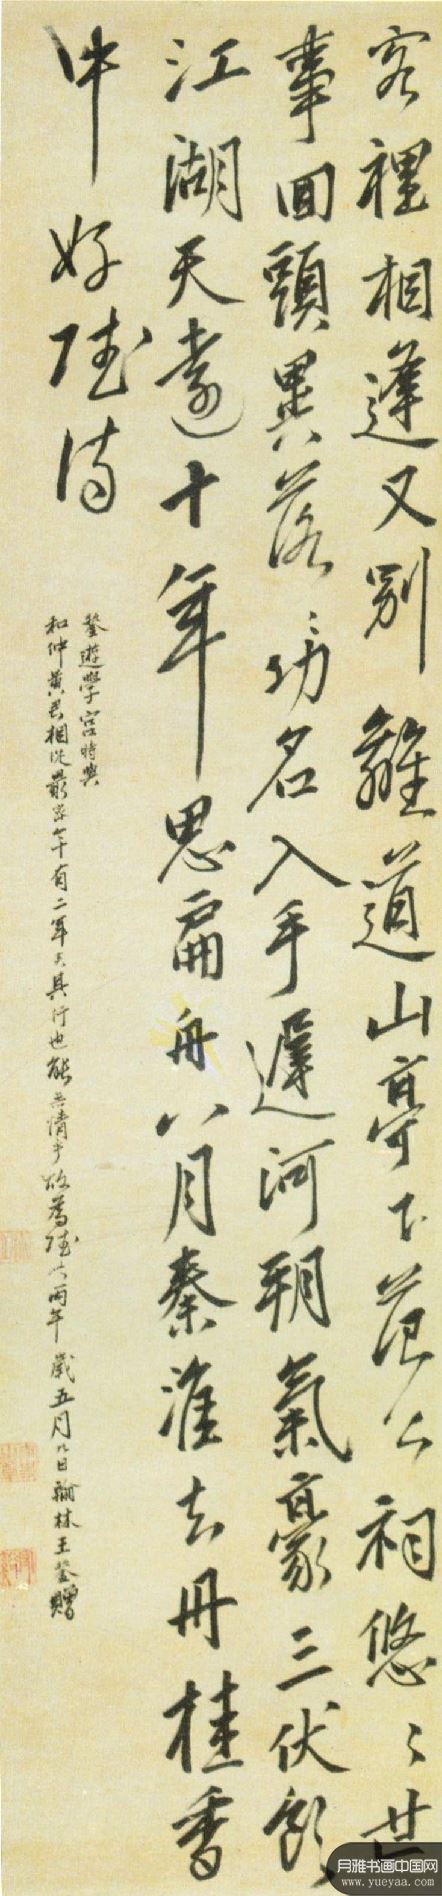 客裡相逢又別離道山亭下范公祠悠〻世
事回頭異落〻功名入手遲河朔氣豪三伏飲
江湖天遠十年思扁舟八月秦淮去丹桂香
中好賦詩
鏊遊學宮時與
和仲黃君相從最密今年有二年矣其行也能無情乎故為賦此丙午歲五月八日翰林王鏊贈
月雅书画中国网
www.yueyaa.com